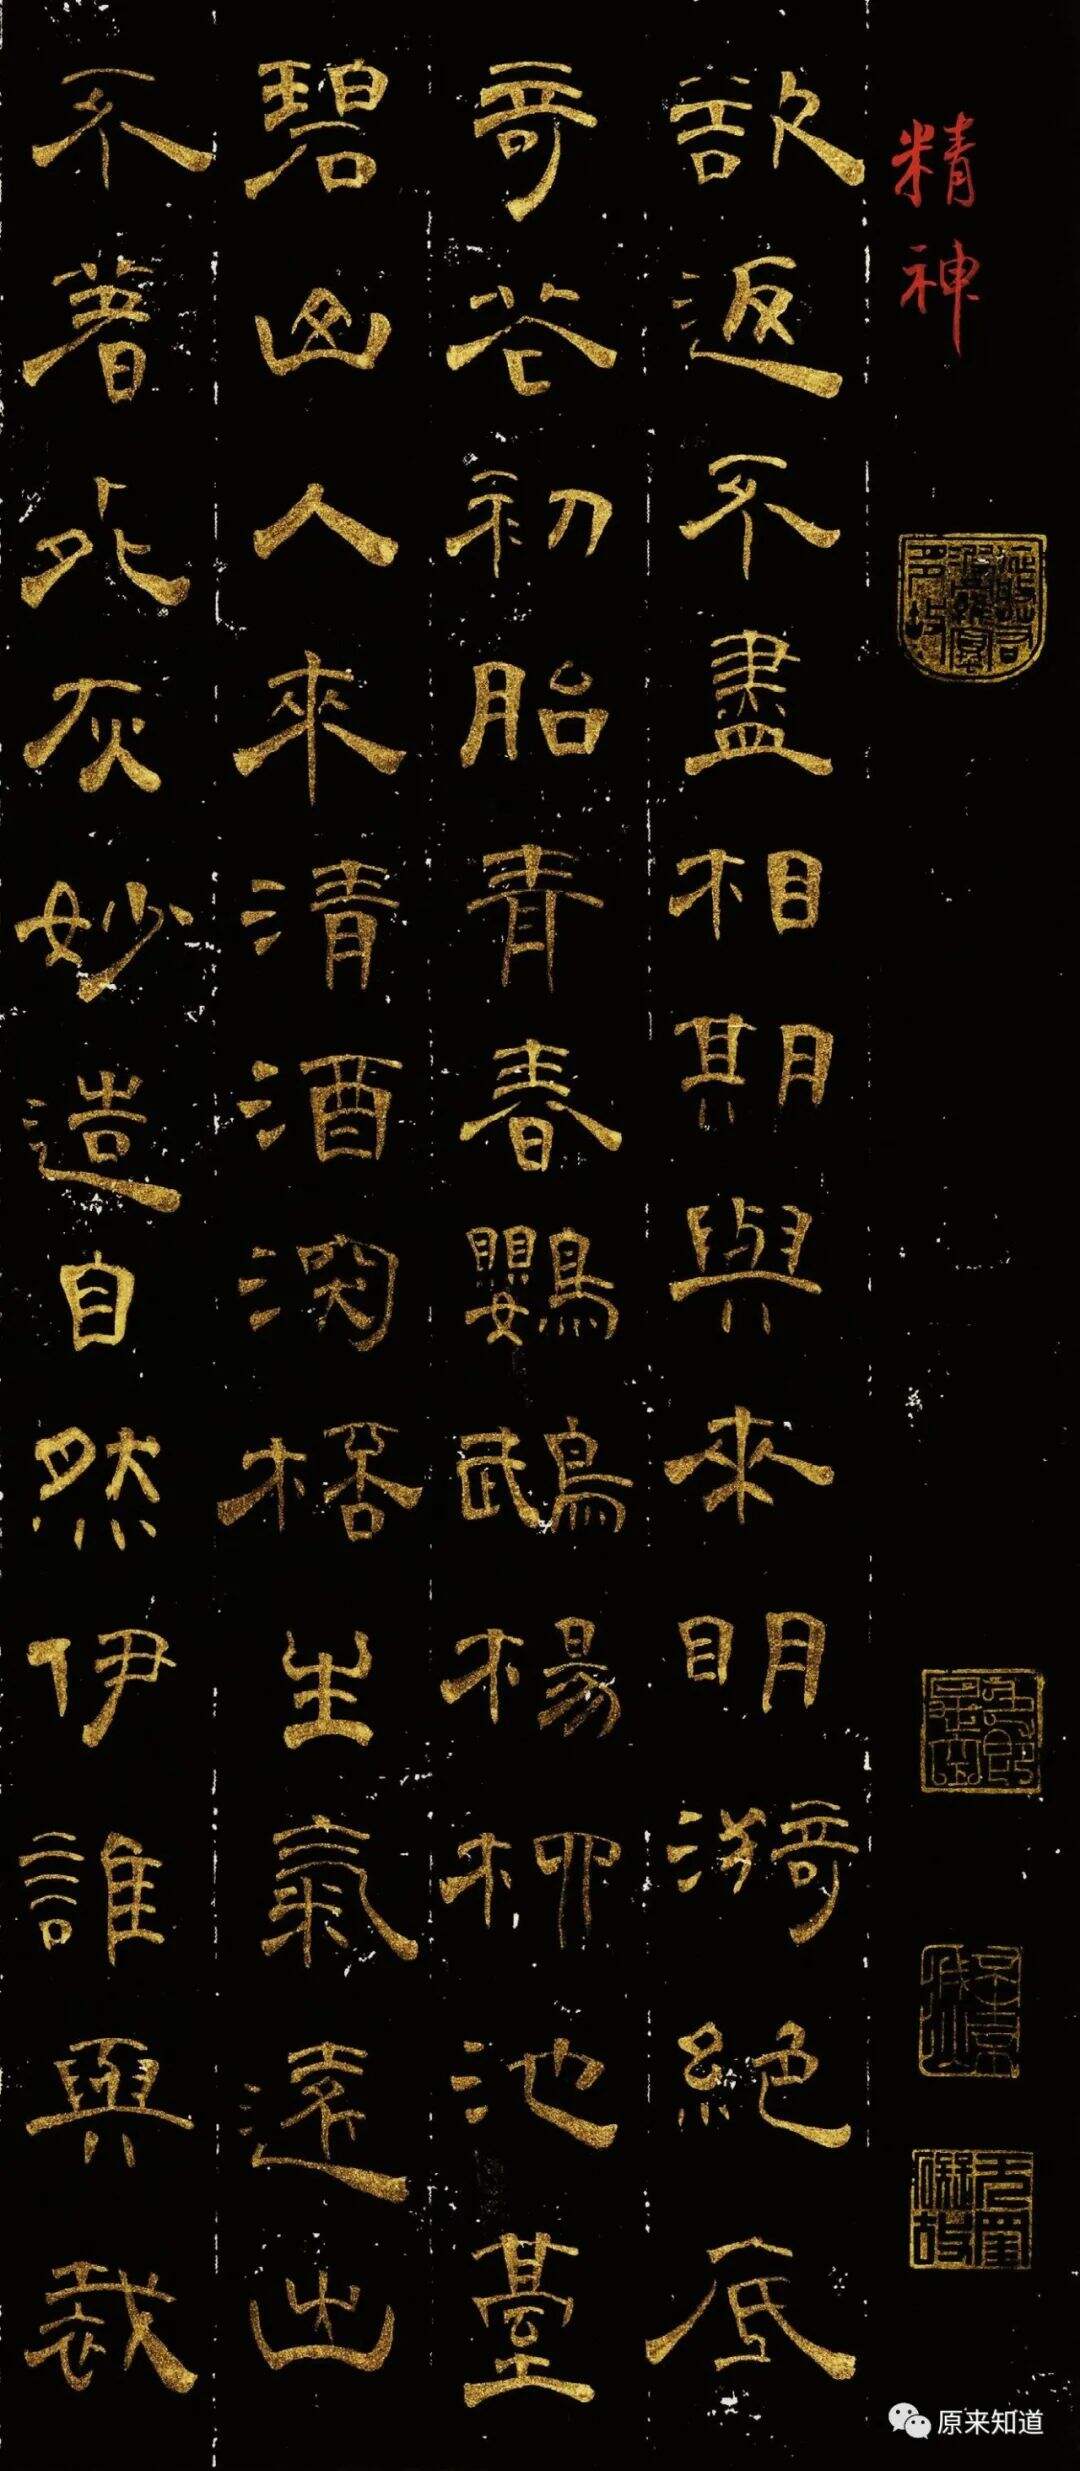 精神
欲返不盡相期與來眀漪絕底
奇花初胎青春鸚鵡楊柳池臺
碧山人來清酒深桮生氣遠出
不著死灰妙造自然伊誰與裁
原来知道